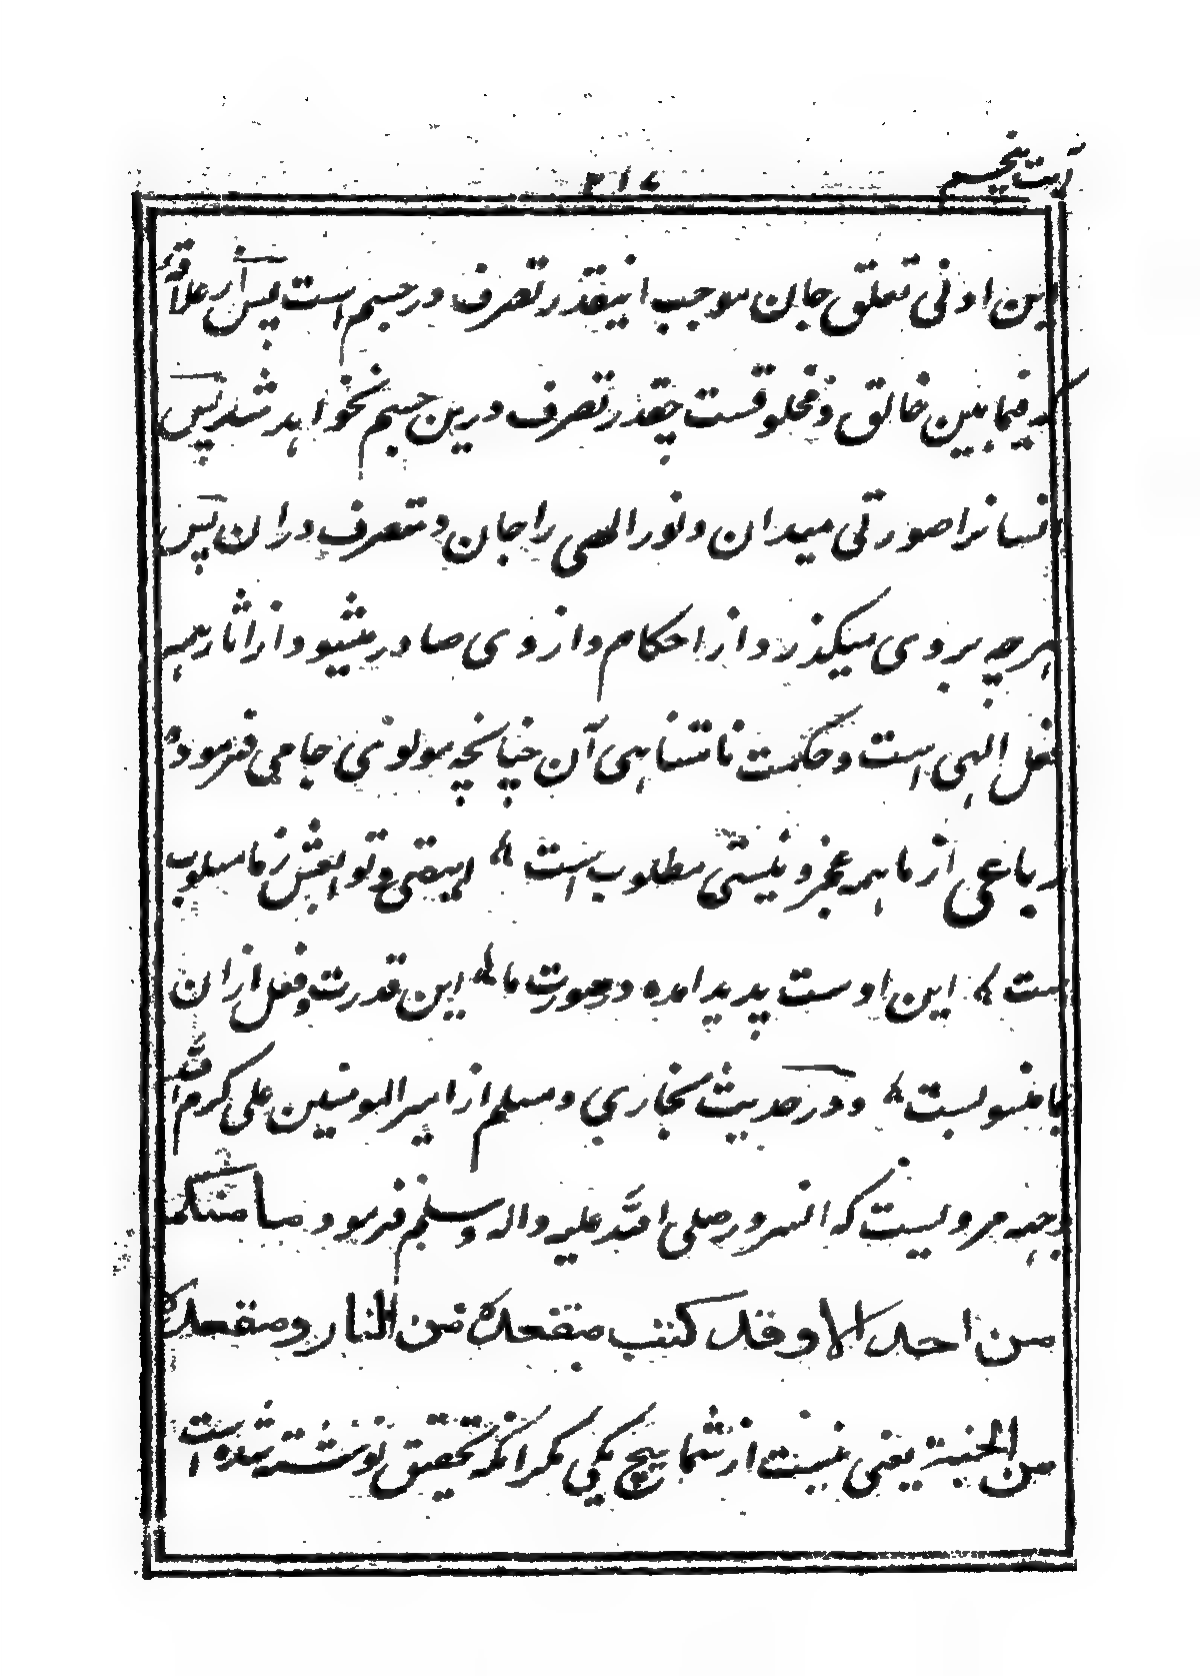 آیت پنجم
۳۱۷
این ادنی تعلق جان موجب اینقدر تصرف در جسم است پس از علاقه
که فیما بین خالق و مخلوقست چقدر تصرف درین جسم نخواهد شد پس
انسانرا صورتی میدان و نور الهی را جان و متصرف دران پس
هرچه بر وی میگذرد و از احکام و از وی صادر میشود و از اثار همه
فعل الهی است و حکمت نا متناهی آن چنانچه مولوی جامی فرموده
رباعی از ما همه عجز و نیستی مطلوب است ؞ هستی و توابعش ز ما مسلوب
ست ؞ این اوست پدید امده در صورت ما ؞ این قدرت و فعل ازان
بما منسوبست ؞ و در حدیث بخاری و مسلم از امیر المومنین علی کرم الله
وجهه مرویست که انسرور صلی الله علیه واله وسلم فرمود ما منکم
من احد الا وقد کتب مقعده من النار ومقعده
من الجنة یعنی نیست از شما هیچ یکی مگر انکه تحقیق نوشته شده است